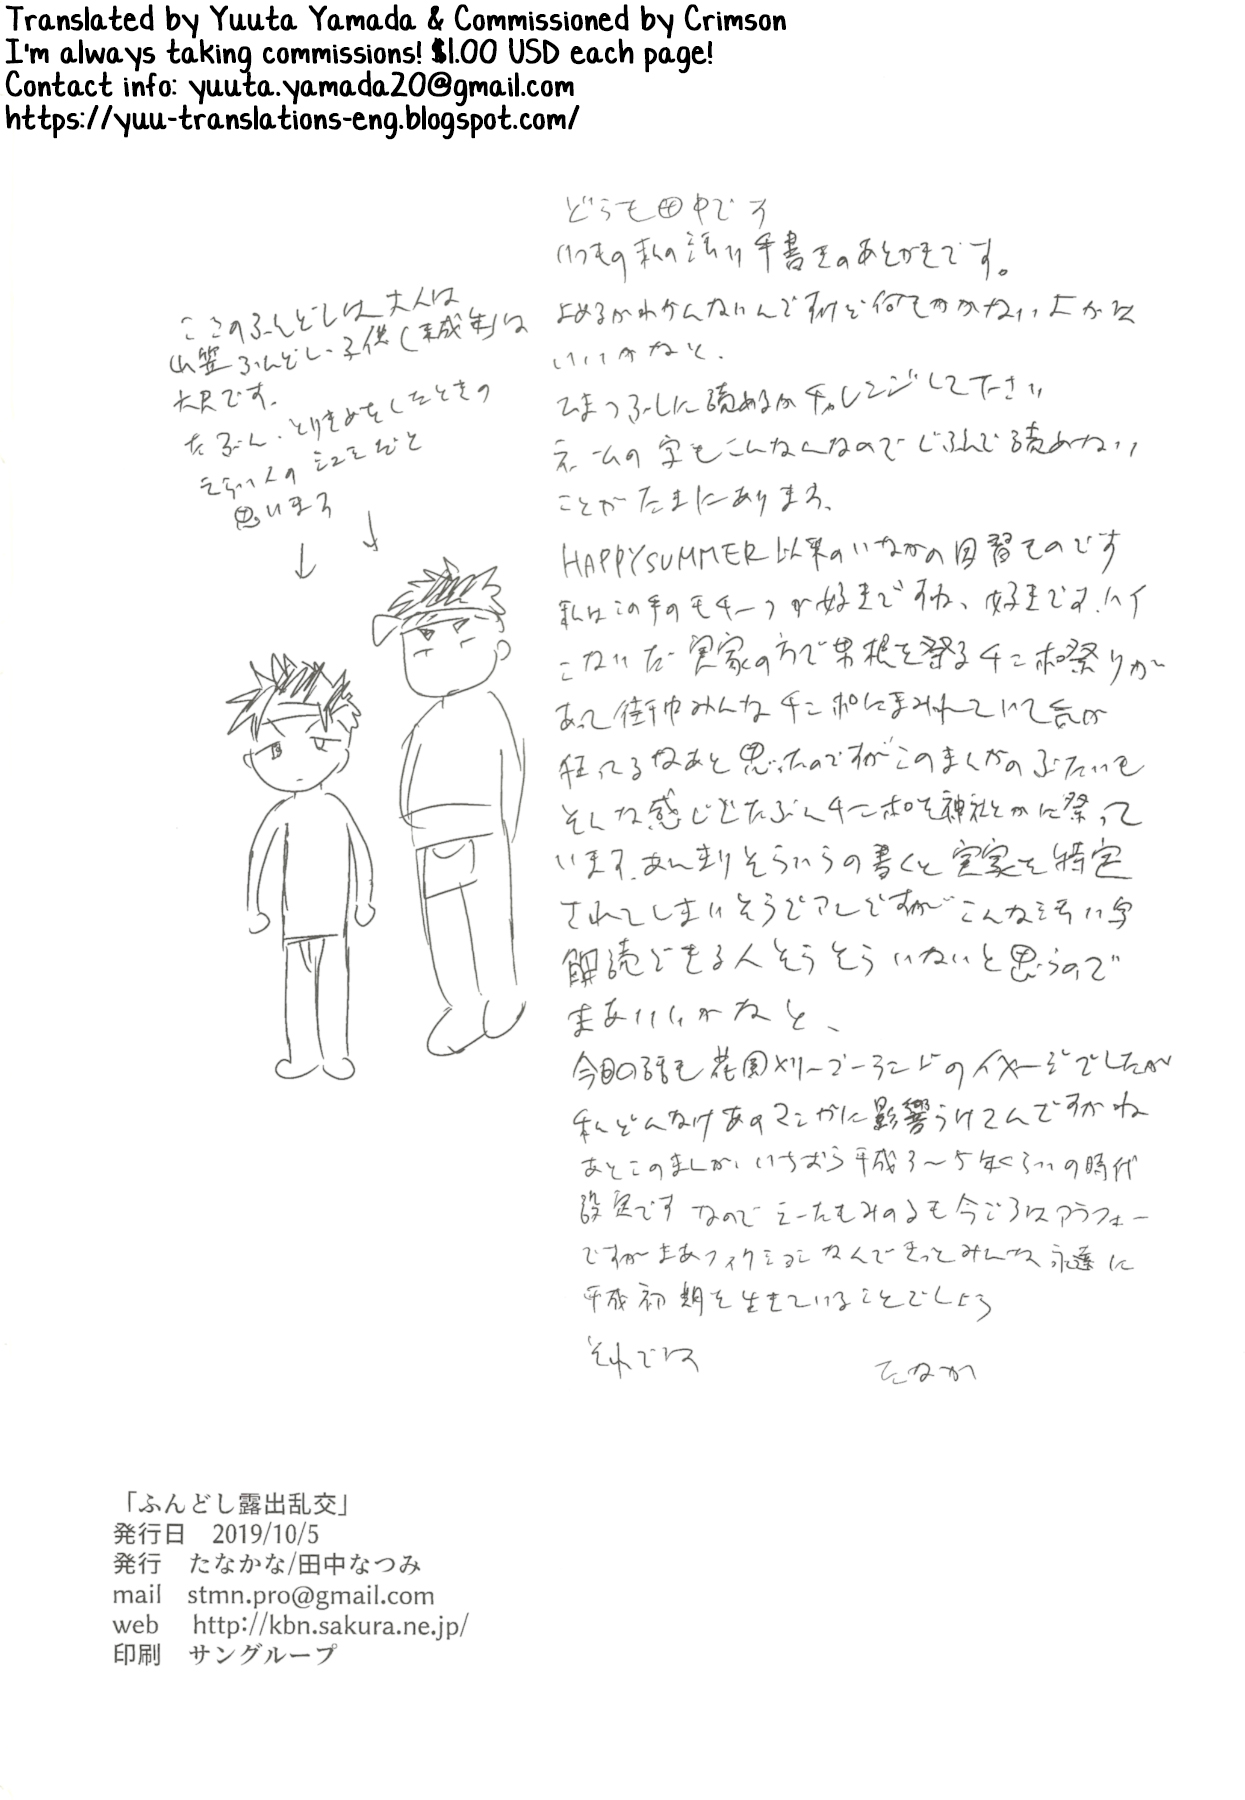 Translated by Yuuta Yamada & Commissioned by Crimson
I'm always taking commissions! $1.00 USD each page!
Contact info: yuuta.yamada20@gmail.com
https://yuu-translations-eng.blogspot.com/
どうも田中です
いつもの私の汚い手書きのあとがきです。
よめるかわかんないんですけど何もかかないよかは
いいかなと、
ひまつぶしに読めるかチャレンジして下さい
ネームの字もこんなんなのでじぶんで読めない
ことがたまにあります、
HAPPYSUMMER以来のいなかの因習ものです
私はこの手のモチーフが好きですね、好きです、ハイ
こないだ実家の方で男根を祭るチンポ祭りが
あって街中みんなチンポにまみれていて
狂ってるなあと思ったのですがこのまんがのぶたいも
そんな感じでたぶんチンポを神社とかに祭って
います、あんまりそういうの書くと実家を特定
されてしまいそうでアレですがこんな汚い字
解読できる人そうそういないと思うので
まあいいかなと、
今回の話も花園メリーゴーランドのイメージでしたが
私どんなけあのマンガに影響うけてんですかね
あとこのまんが、いちおう平成3〜5年くらいの時代
設定です なので もみのるも今ごろはアラフォー
ですがまあフィクションなんできっとみんな永遠に
平成初期を生きていることでしょう
それでは
たなか
ここのふんどしは大人は
山笠ふんどし、子供(未成年)は
六尺です、
たぶん、とりきめをしたときの
えらい人の だと
思います
「ふんどし露出乱交」
発行日 2019/10/5
発行 たなかな/田中なつみ
mail stmn.pro@gmail.com
web http://kbn.sakura.ne.jp/
印刷 サングループ